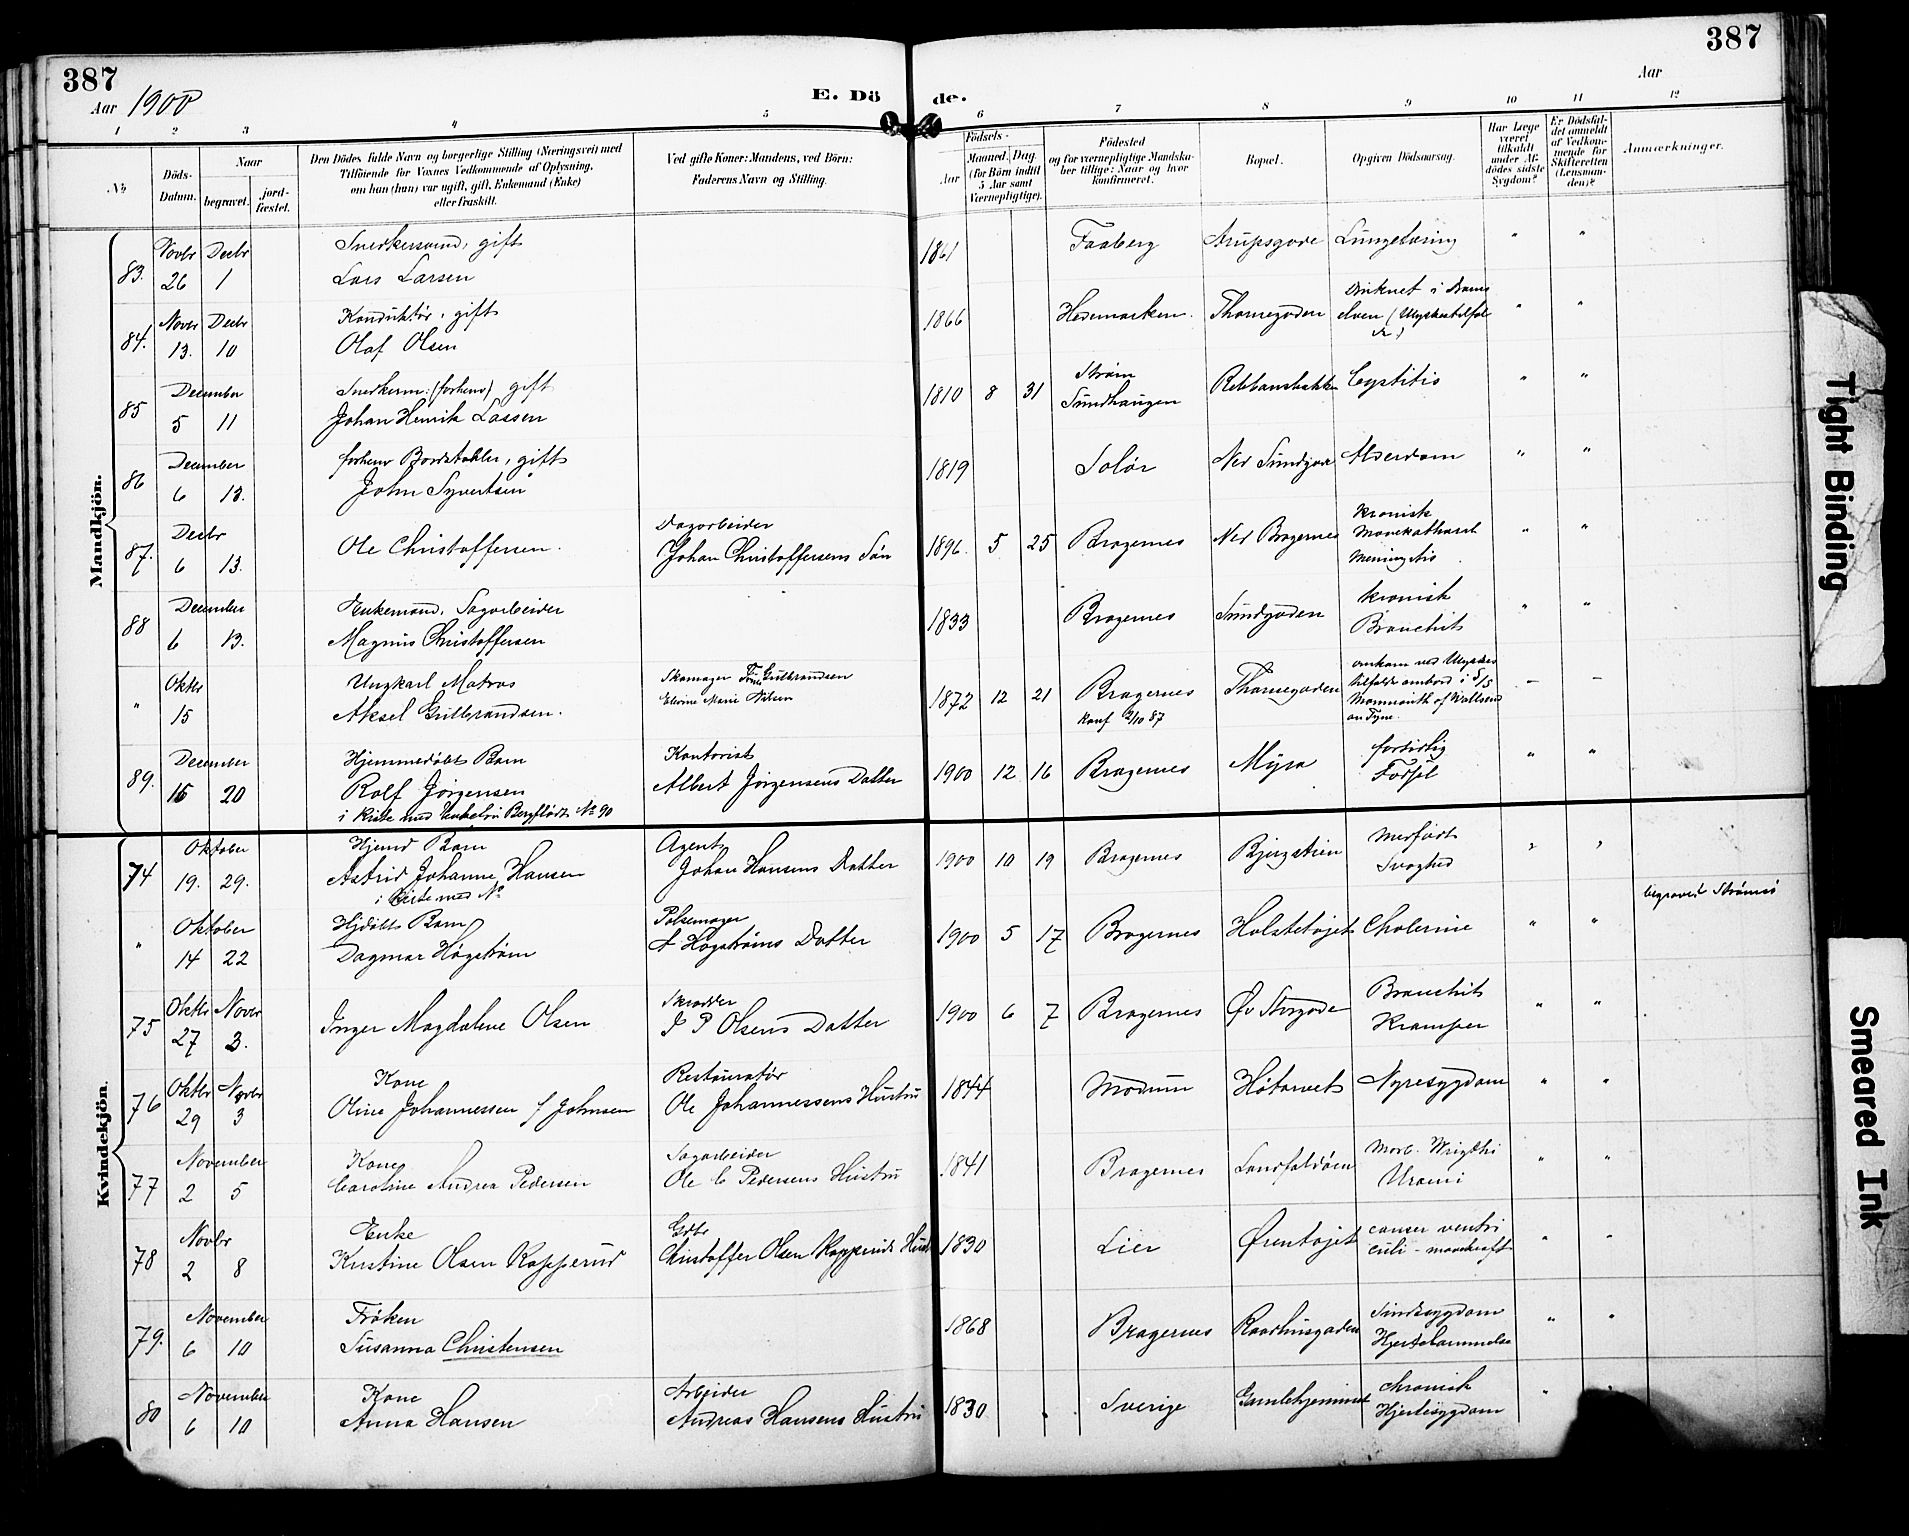 387
387
Aar 1900
E. Döde.
Aar
1 2 3 4 5 6 7 8 9 10 11 12
No
Döds-
Datum.
Naar
begravet.
jord-
fæstet.
Den Dödes fulde Navn og borgerlige Stilling (Næringsvei) med
Tilföiende for Voxnes Vedkommende af Oplysning,
om han (hun) var ugift, gift, Enkemand (Enke)
eller fraskilt.
Ved gifte Koner: Mandens, ved Börn:
Faderens Navn og Stilling.
Födsels-
Aar
Maaned. Dag.
(for Börn indtil
5 Aar samt
Værnepligtige).
Födested
og for værnepligtige Mandska-
ber tillige: Naar og hvor
konfirmeret.
Bopæl.
Opgiven Dödsaarsag.
Har Læge
været
tilkaldt
under Af-
dödes sidste
Sygdom?
Er Dödsfal-
det anmeldt
af Vedkom-
mende for
Skifteretten
(Lensman-
den)?
Anmærkninger.
Mandkjön.
83. Novbr 26 Decbr 1
Snedkersvend, gift
Lars Larsen
1861 Faaberg Arupsgade Lungetæring " "
84. Novbr 13. Decbr 10
Konduktør, gift
Olaf Olsen
1866 Hedemarken. Thornegaden
Druknet i Drams
elven (Ulykkestilfæl
de)
" "
85 December 5 11
Snedkerm: (forhenv) gift
Johan Henrik Lassen
1810 8 31
Strøm
Sundhaugen
Rebbansbakke Cystitis " "
86 December 6 13.
forhenv Bordstabler, gift
John Syvertsen
1819 Solør Ned Sundgade Alderdom " "
87. Decbr 6 13.
Ole Christoffersen.
Dagarbeider
Johan Christoffersens Søn
1896. 5 25 Bragernes Ned Bragernes
kronisk
Mavekatharrh
Meningitis
" "
88 December 6 13.
Enkemand, Sagarbeider
Magnus Christoffersen
1833 Bragernes Sundgaden
kronisk
Bronchit
" "
" Oktbr 15
Ungkarl Matros
Aksel Gulbrandsen.
Skomager Gulbrandsen
Marie Nilsen
1872 12 21 Bragernes
Konf 2/10 87
Thornegaden
omkom ved Ulykkes
tilfælde ombord i S/S
Monmouth of Wallsend
on Tyne.
– –
89. December 16 20
Hjemmedøbt Barn
Rolf Jørgensen
i Kiste med Bergflødt No 90
Kontorist
Albert Jørgensens Datter
1900 12 16 Bragernes Myra
fortidlig
Fødsel
" "
Kvindekjön.
74 Oktober 19. 29.
Hjemd Barn
Astrid Johanne Hansen
i Kiste med No
Agent
Johan Hansens Datter
1900 10 19 Bragernes Bjergstien
Medfødt
Svaghed
" "
" Oktober 14 22
Hjdøbt Barn
Dagmar Høgstrøm
Pølsemager
A Høgstrøms Datter
1900 5 17 Bragernes Holstetøjet Cholerine " "
begravet Strømsø
75 Oktbr 27 Novbr 3.
Inger Magdalene Olsen
Skrædder
I P Olsens Datter
1900 6 7 Bragernes Øv Storgade
Bronchit
Kramper
" "
76 Oktbr 29 Novbr 3
Kone
Oline Johannessen f Johnsen
Restauratør
Ole Johannessens Hustru
1844 Modum Høtorvet Nyresygdom " "
77 November 2 5
Kone
Caroline Andrea Pedersen
Sagarbeider
Ole C Pedersens Hustru
1841 Bragernes Landfaldøen
Morb. Brigthi
Urämi
" "
78 Novbr 2 8
Enke
Kristine Olsen Kopperud
Gdbr
Christoffer Olsen Kopperuds Hust
1830 Lier Ørentøjet
cancer ventri
culi - mavekræft
" "
79. November 6 10
Frøken
Susanna Christensen
1868 Bragernes Raadhusgaden
Sindssygdom
Hjertelammelse
" "
80 November 6 10
Kone
Anna Hansen
Arbeider
Andreas Hansens Hustru
1830 Sverige Gamlehjemmet
chronisk
Hjertesygdom
" "
Tight Binding
Smeared Ink